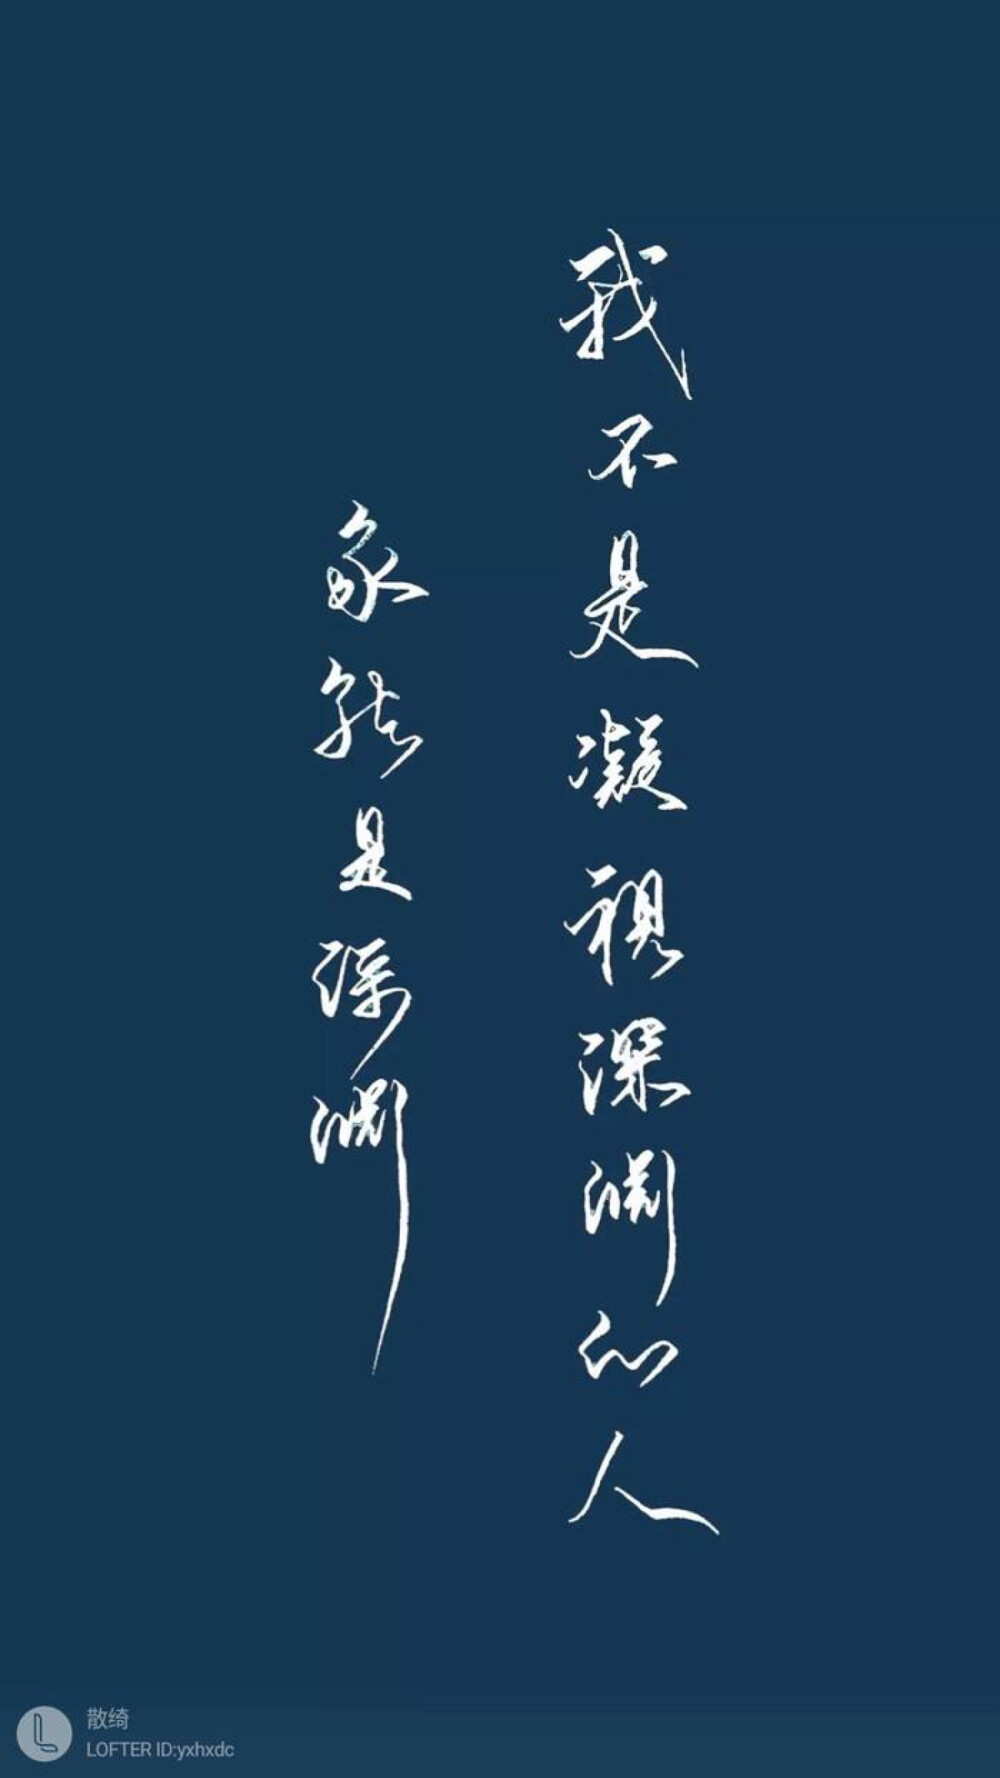 我不是凝视深渊的人
我就是深渊
散绮
LOFTER ID:yxhxdc